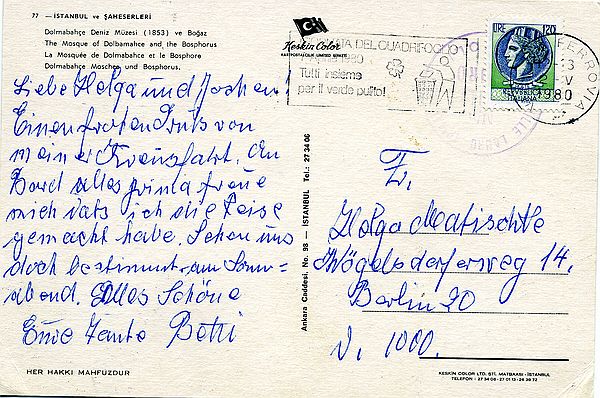 77 — İSTANBUL ve ŞAHESERLERİ
Dolmabahçe Deniz Müzesi (1853) ve Boğaz
The Mosque of Dolbamahce and the Bosphorus
La Mosquée de Dolmabahce et le Bosphore
Dolmabahçe Moschee und Bosphorus.
Liebe Helga und Jochen!
Einen frohen Gruß von
meiner Kreuzfahrt. An
Bord alles prima freue
mich dass ich die Reise
gemacht habe. Sehen uns
doch bestimmt am Sonn=
abend. Alles Schöne
Eure Tante Betti
HER HAKKI MAHFUZDUR
Keskin Color
KARTPOSTALCILIK LIMITED SIRKETI
Ankara Caddesi. No. 98 — İSTANBUL Tel.: 27 34 06
DEL QUADRIFOGLIO
1980
Tutti insieme
per il verde pulito!
LIRE 120
ITALIANA
FERROVIA
1980
LAURO
Helga Matischtke
Kögelsdorferweg 14.
Berlin 20
1000.
KESKIN COLOR LTD. STI. MATBAASI - İSTANBUL
TELEFON - 27 34 06 - 27 01 13 - 26 36 72